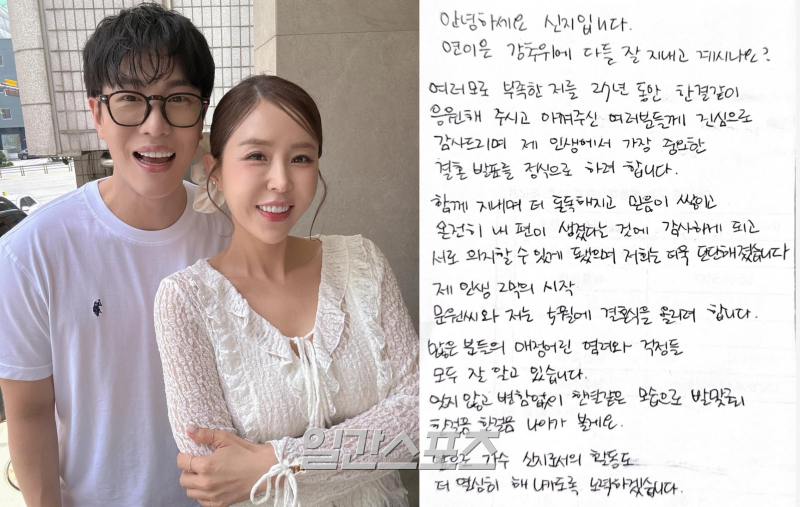 안녕하세요 신지입니다.
연이은 강추위에 다들 잘 지내고 계시나요?
여러모로 부족한 저를 27년 동안 한결같이
응원해 주시고 아껴주신 여러분들께 진심으로
감사드리며 제 인생에서 가장 중요한
결혼 발표를 정식으로 하려 합니다.
함께 지내며 더 돈독해지고 믿음이 쌓이고
온전히 내 편이 생겼다는 것에 감사하게 되고
서로 의지할 수 있게 됐으며 저희는 더욱 단단해졌습니다
제 인생 2막의 시작
문원씨와 저는 5월에 결혼식을 올리려 합니다.
많은 분들의 애정어린 염려와 걱정들
모두 잘 알고 있습니다.
잊지 않고 변함없이 한결같은 모습으로 발맞춰
한걸음 한걸음 나아가 볼게요.
앞으로 가수 신지로서의 활동도
더 열심히 해 나가도록 노력하겠습니다.
일간스포츠